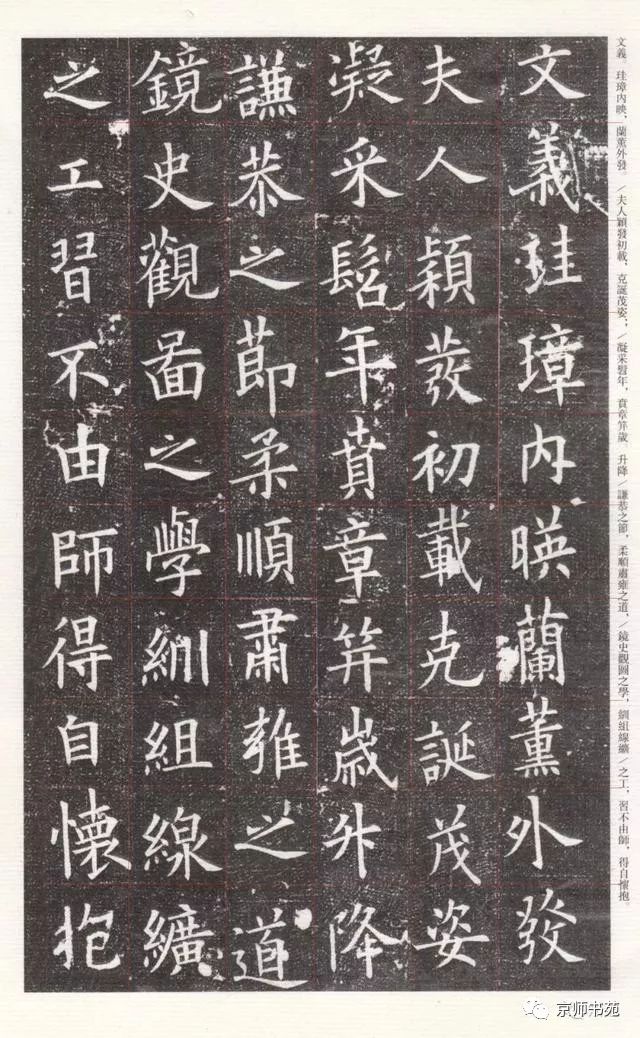 文義珪璋内暎蘭薰外發
夫人穎發初載克誕茂姿
凝采髫年賁章笄歲升降
謙恭之節柔順肅雍之道
鏡史觀圖之學紃組線纊
之工習不由師得自懷抱
文義。珪璋內映，蘭薰外發。／夫人穎發初載，克誕茂姿；／凝采髫年，賁章笄歲　升降／謙恭之節，柔順肅雍之道，／鏡史觀圖之學，紃組線纊／之工，習不由師，得自懷抱。
京师书苑